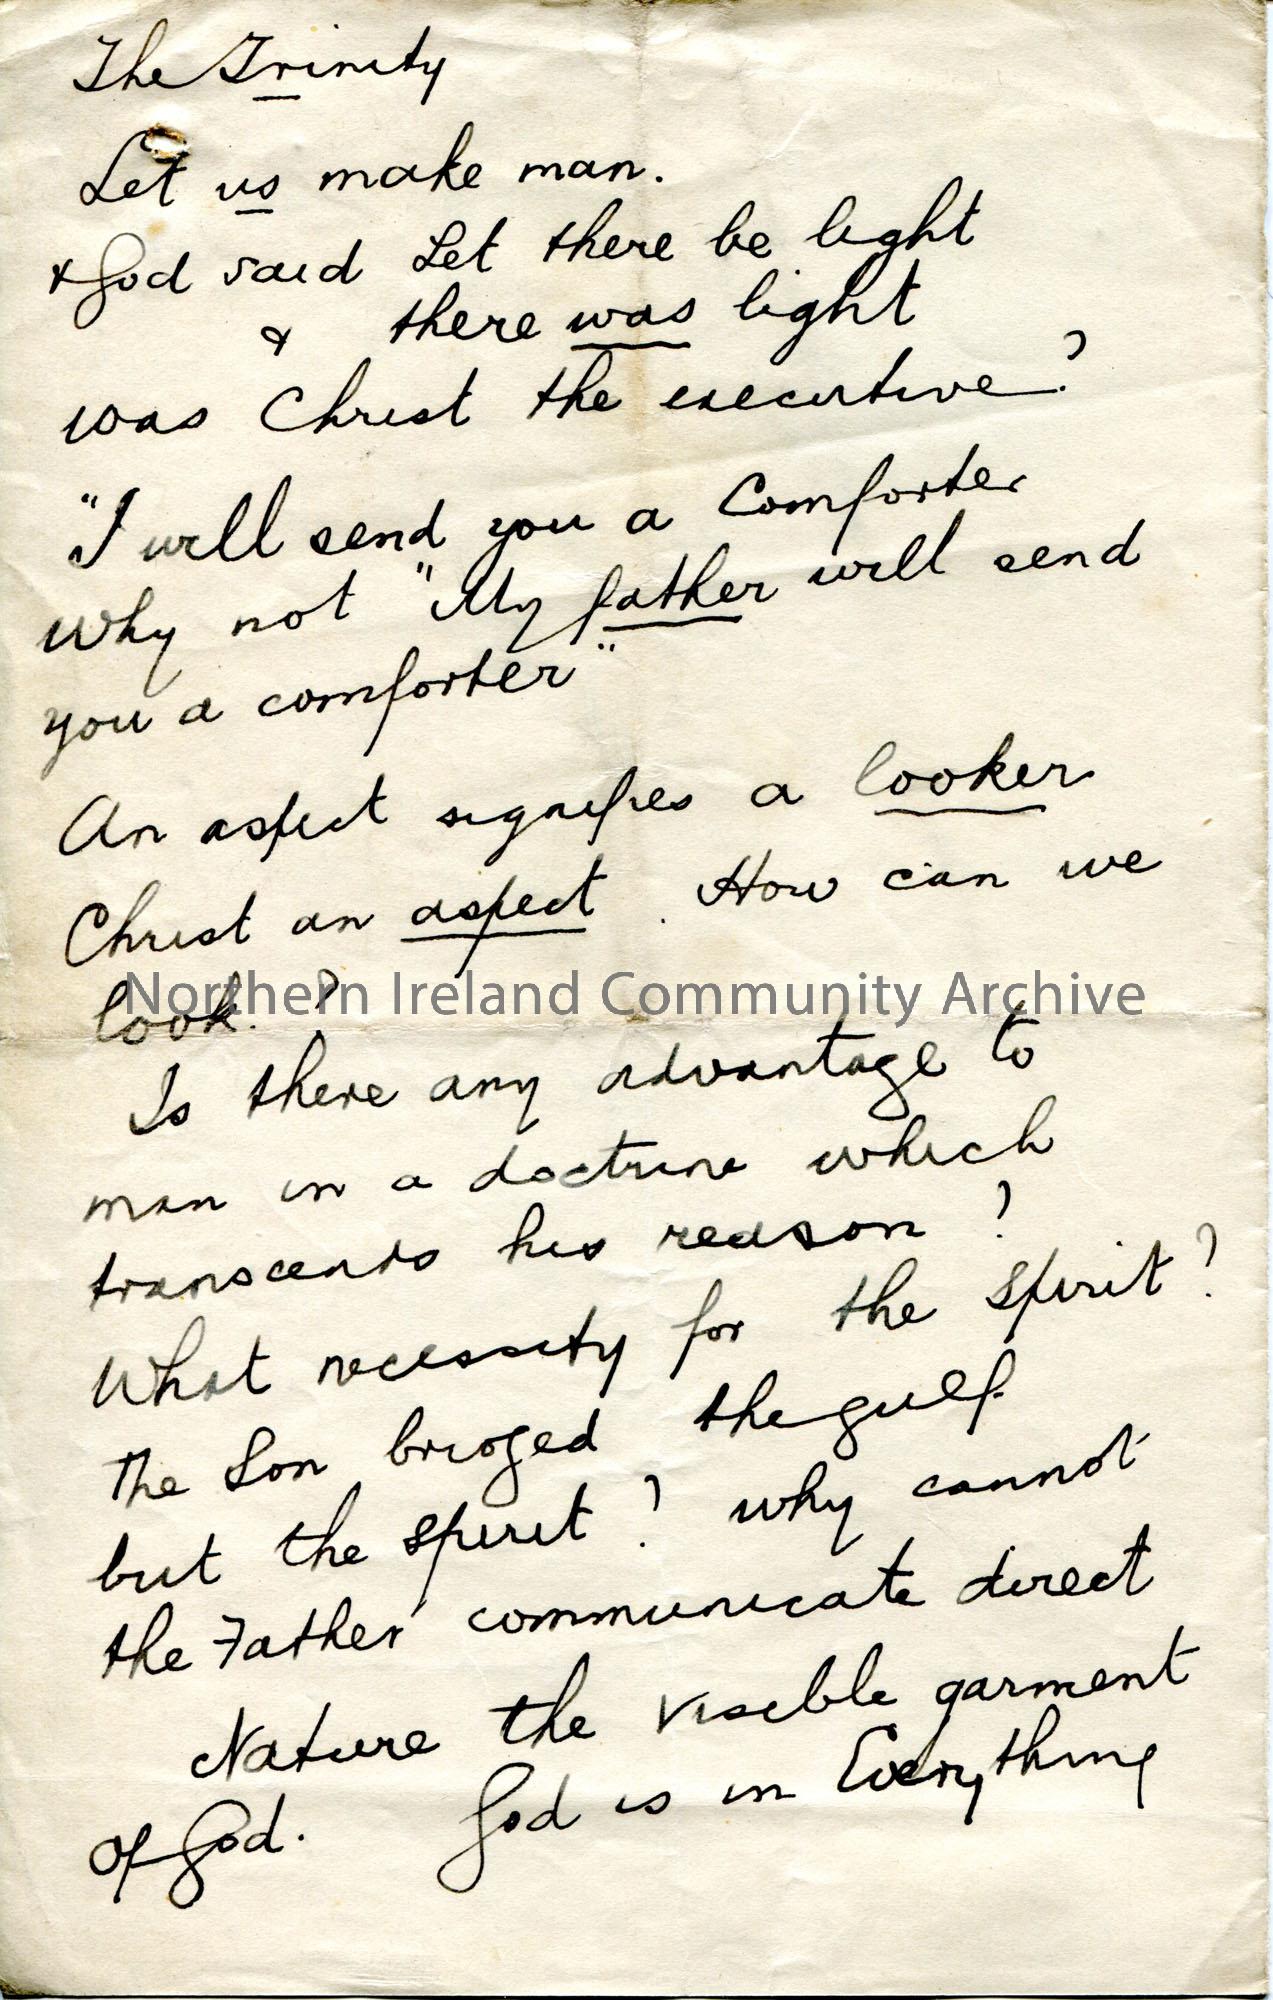 The Trinity
Let us make man.
& God said Let there be light
& there was light
was Christ the executive?
"I will send you a Comforter
why not "My father will send
you a comforter"
An aspect signifies a looker
Christ an aspect. How can we
look?
Northern Ireland Community Archive
Is there any advantage to
man in a doctrine which
transcends his reason?
What necessity for the spirit?
The Son bridged the gulf
but the spirit? why cannot
the Father communicate direct
Nature the visible garment
of God. God is in Everything